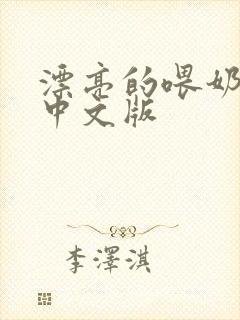 漂亮的喂奶
中文版
李澤淇